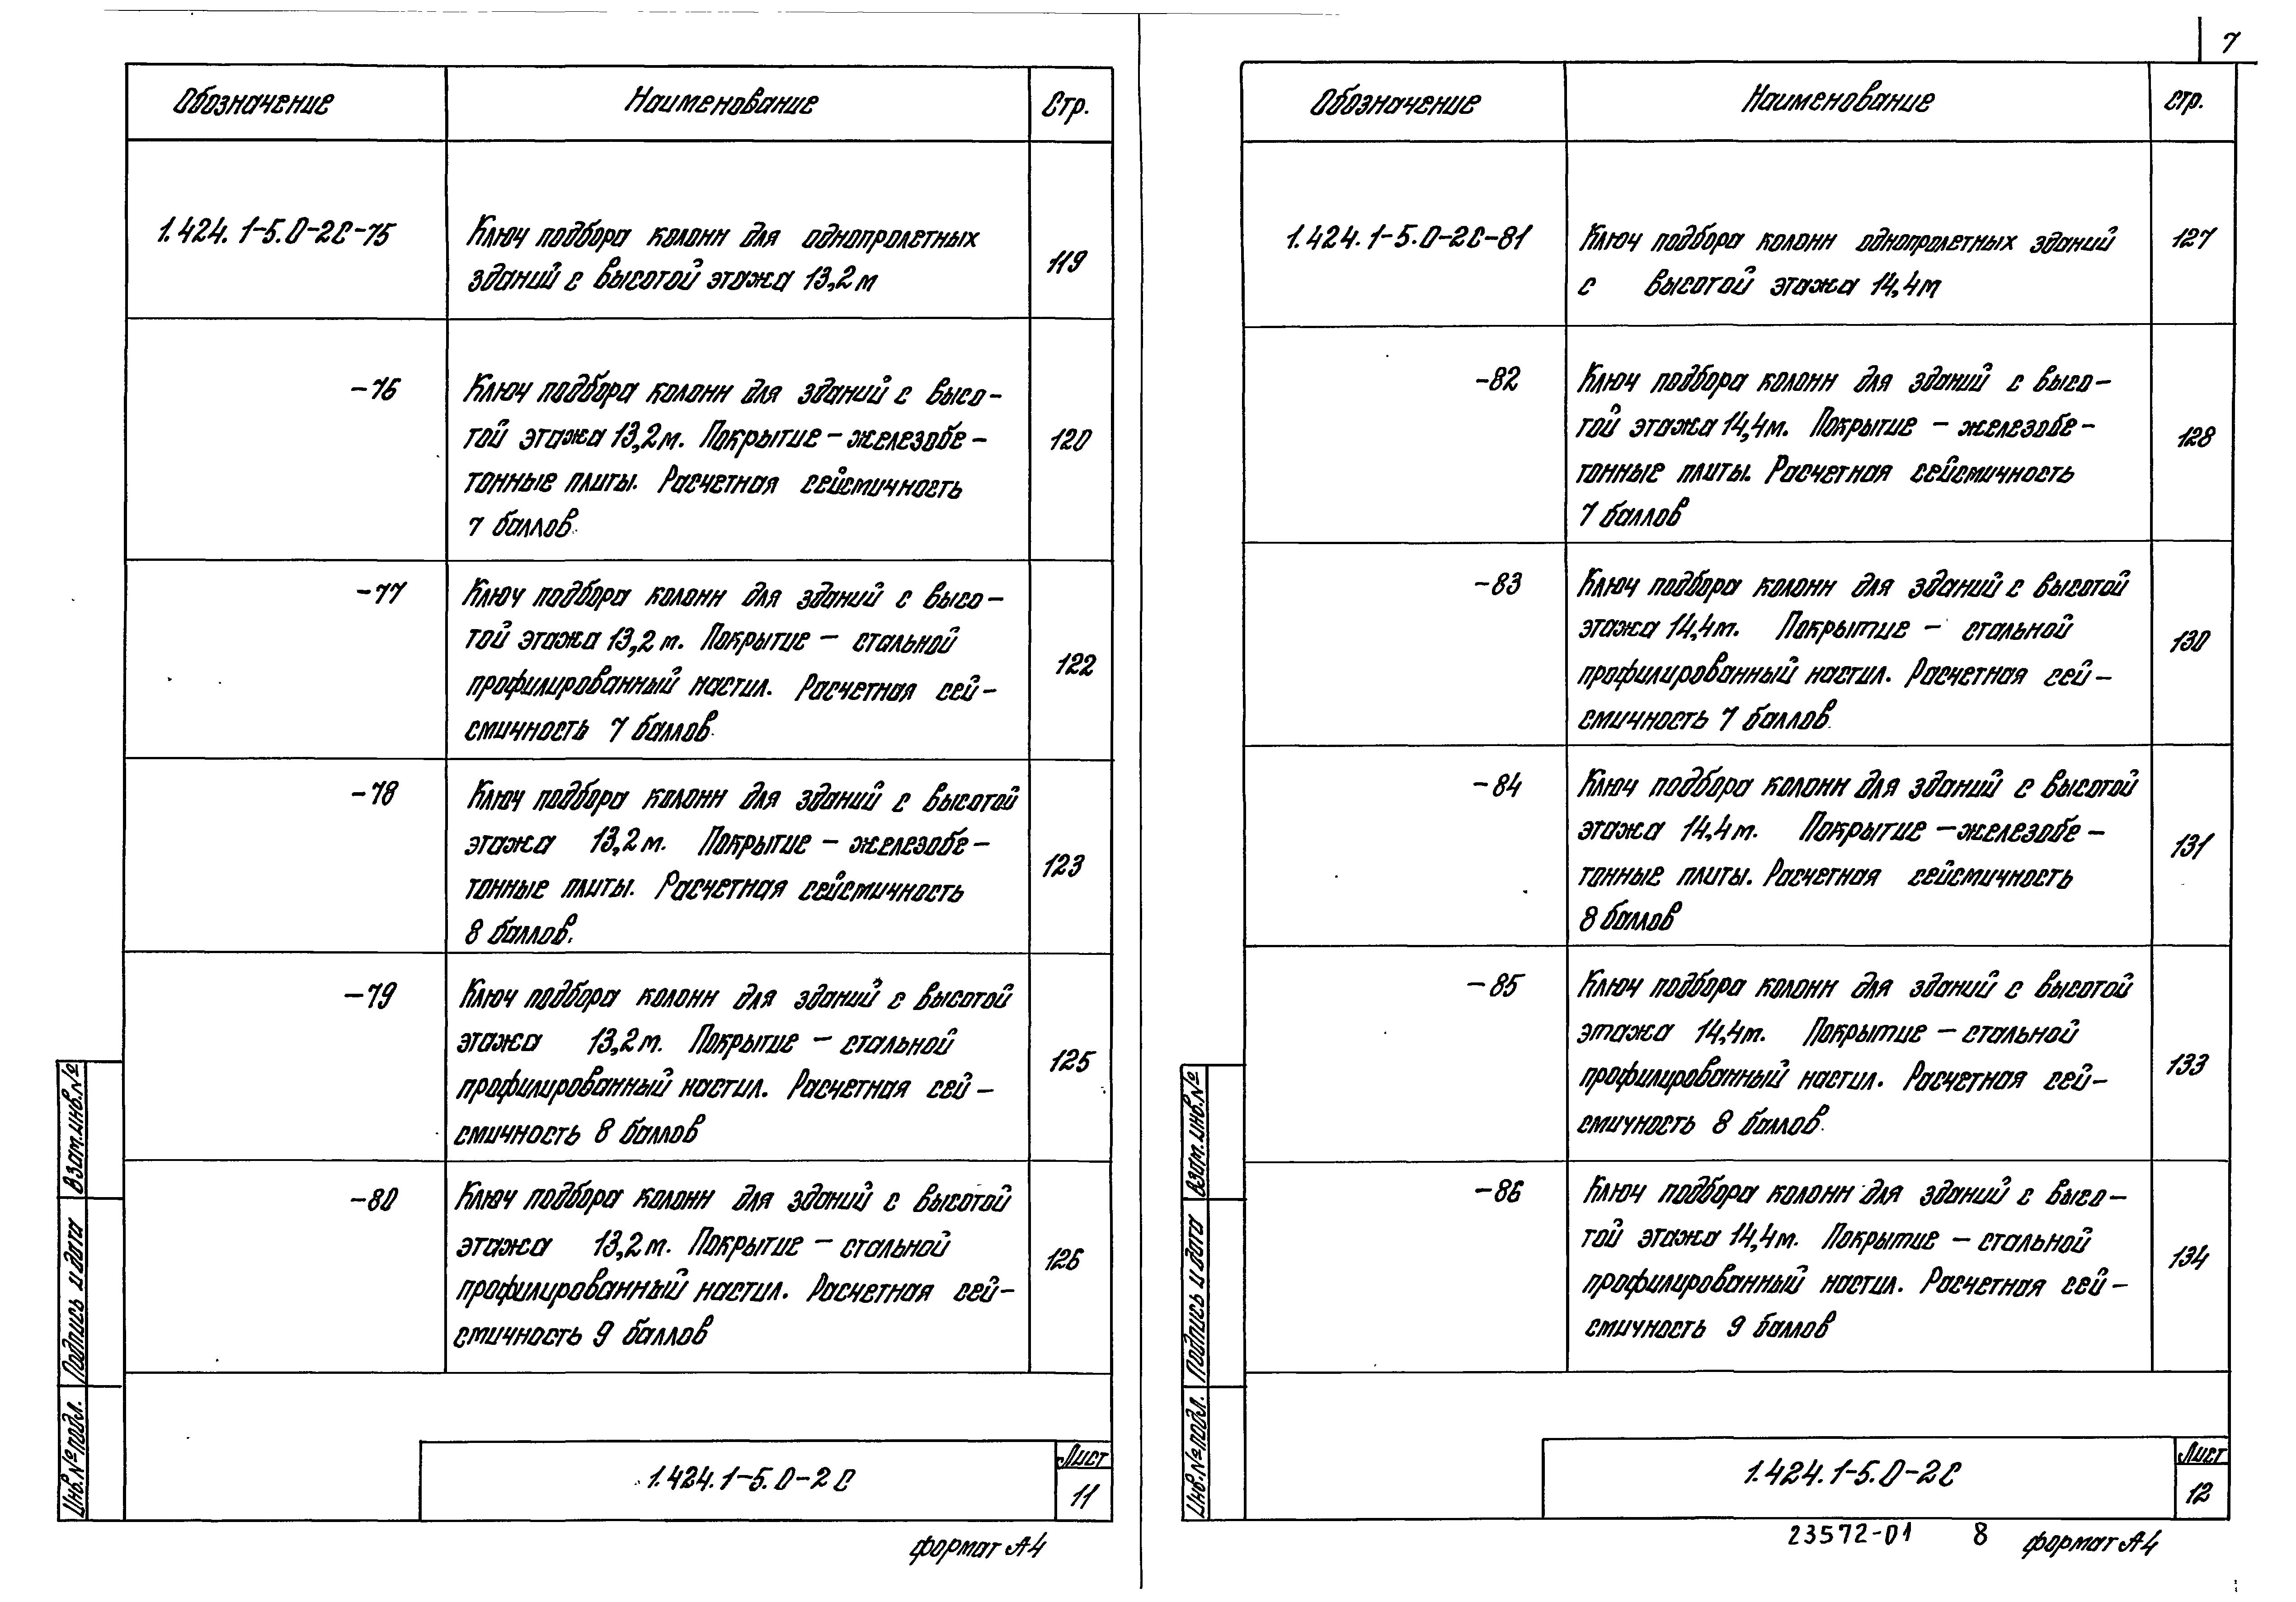 7
Обозначение Наименование Стр.
1.424.1-5.0-2С-75 Ключ подбора колонн для однопролетных
зданий с высотой этажа 13,2м 119
-76 Ключ подбора колонн для зданий с высо-
той этажа 13,2м. Покрытие - железобе-
тонные плиты. Расчетная сейсмичность
7 баллов. 120
-77 Ключ подбора колонн для зданий с высо-
той этажа 13,2м. Покрытие - стальной
профилированный настил. Расчетная сей-
смичность 7 баллов. 122
-78 Ключ подбора колонн для зданий с высотой
этажа 13,2м. Покрытие - железобе-
тонные плиты. Расчетная сейсмичность
8 баллов. 123
-79 Ключ подбора колонн для зданий с высотой
этажа 13,2м. Покрытие - стальной
профилированный настил. Расчетная сей-
смичность 8 баллов 125
-80 Ключ подбора колонн для зданий с высотой
этажа 13,2м. Покрытие - стальной
профилированный настил. Расчетная сей-
смичность 9 баллов 126
Взам.инв.№
Подпись и дата
Инв.№ подл.
1.424.1-5.0-2С
Лист
11
формат А4
Обозначение Наименование стр.
1.424.1-5.0-2С-81 Ключ подбора колонн однопролетных зданий
с высотой этажа 14,4м 127
-82 Ключ подбора колонн для зданий с высо-
той этажа 14,4м. Покрытие - железобе-
тонные плиты. Расчетная сейсмичность
7 баллов 128
-83 Ключ подбора колонн для зданий с высотой
этажа 14,4м. Покрытие - стальной
профилированный настил. Расчетная сей-
смичность 7 баллов. 130
-84 Ключ подбора колонн для зданий с высотой
этажа 14,4м. Покрытие - железобе-
тонные плиты. Расчетная сейсмичность
8 баллов 131
-85 Ключ подбора колонн для зданий с высотой
этажа 14,4м. Покрытие - стальной
профилированный настил. Расчетная сей-
смичность 8 баллов. 133
-86 Ключ подбора колонн для зданий с высо-
той этажа 14,4м. Покрытие - стальной
профилированный настил. Расчетная сей-
смичность 9 баллов 134
Взам.инв.№
Подпись и дата
Инв.№ подл.
1.424.1-5.0-2С
Лист
12
23572-01 8 формат А4